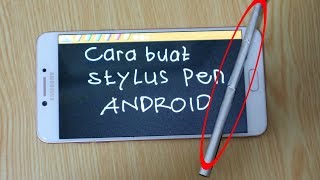 Cara buat
stylus pen
ANDROID
SAMSUNG